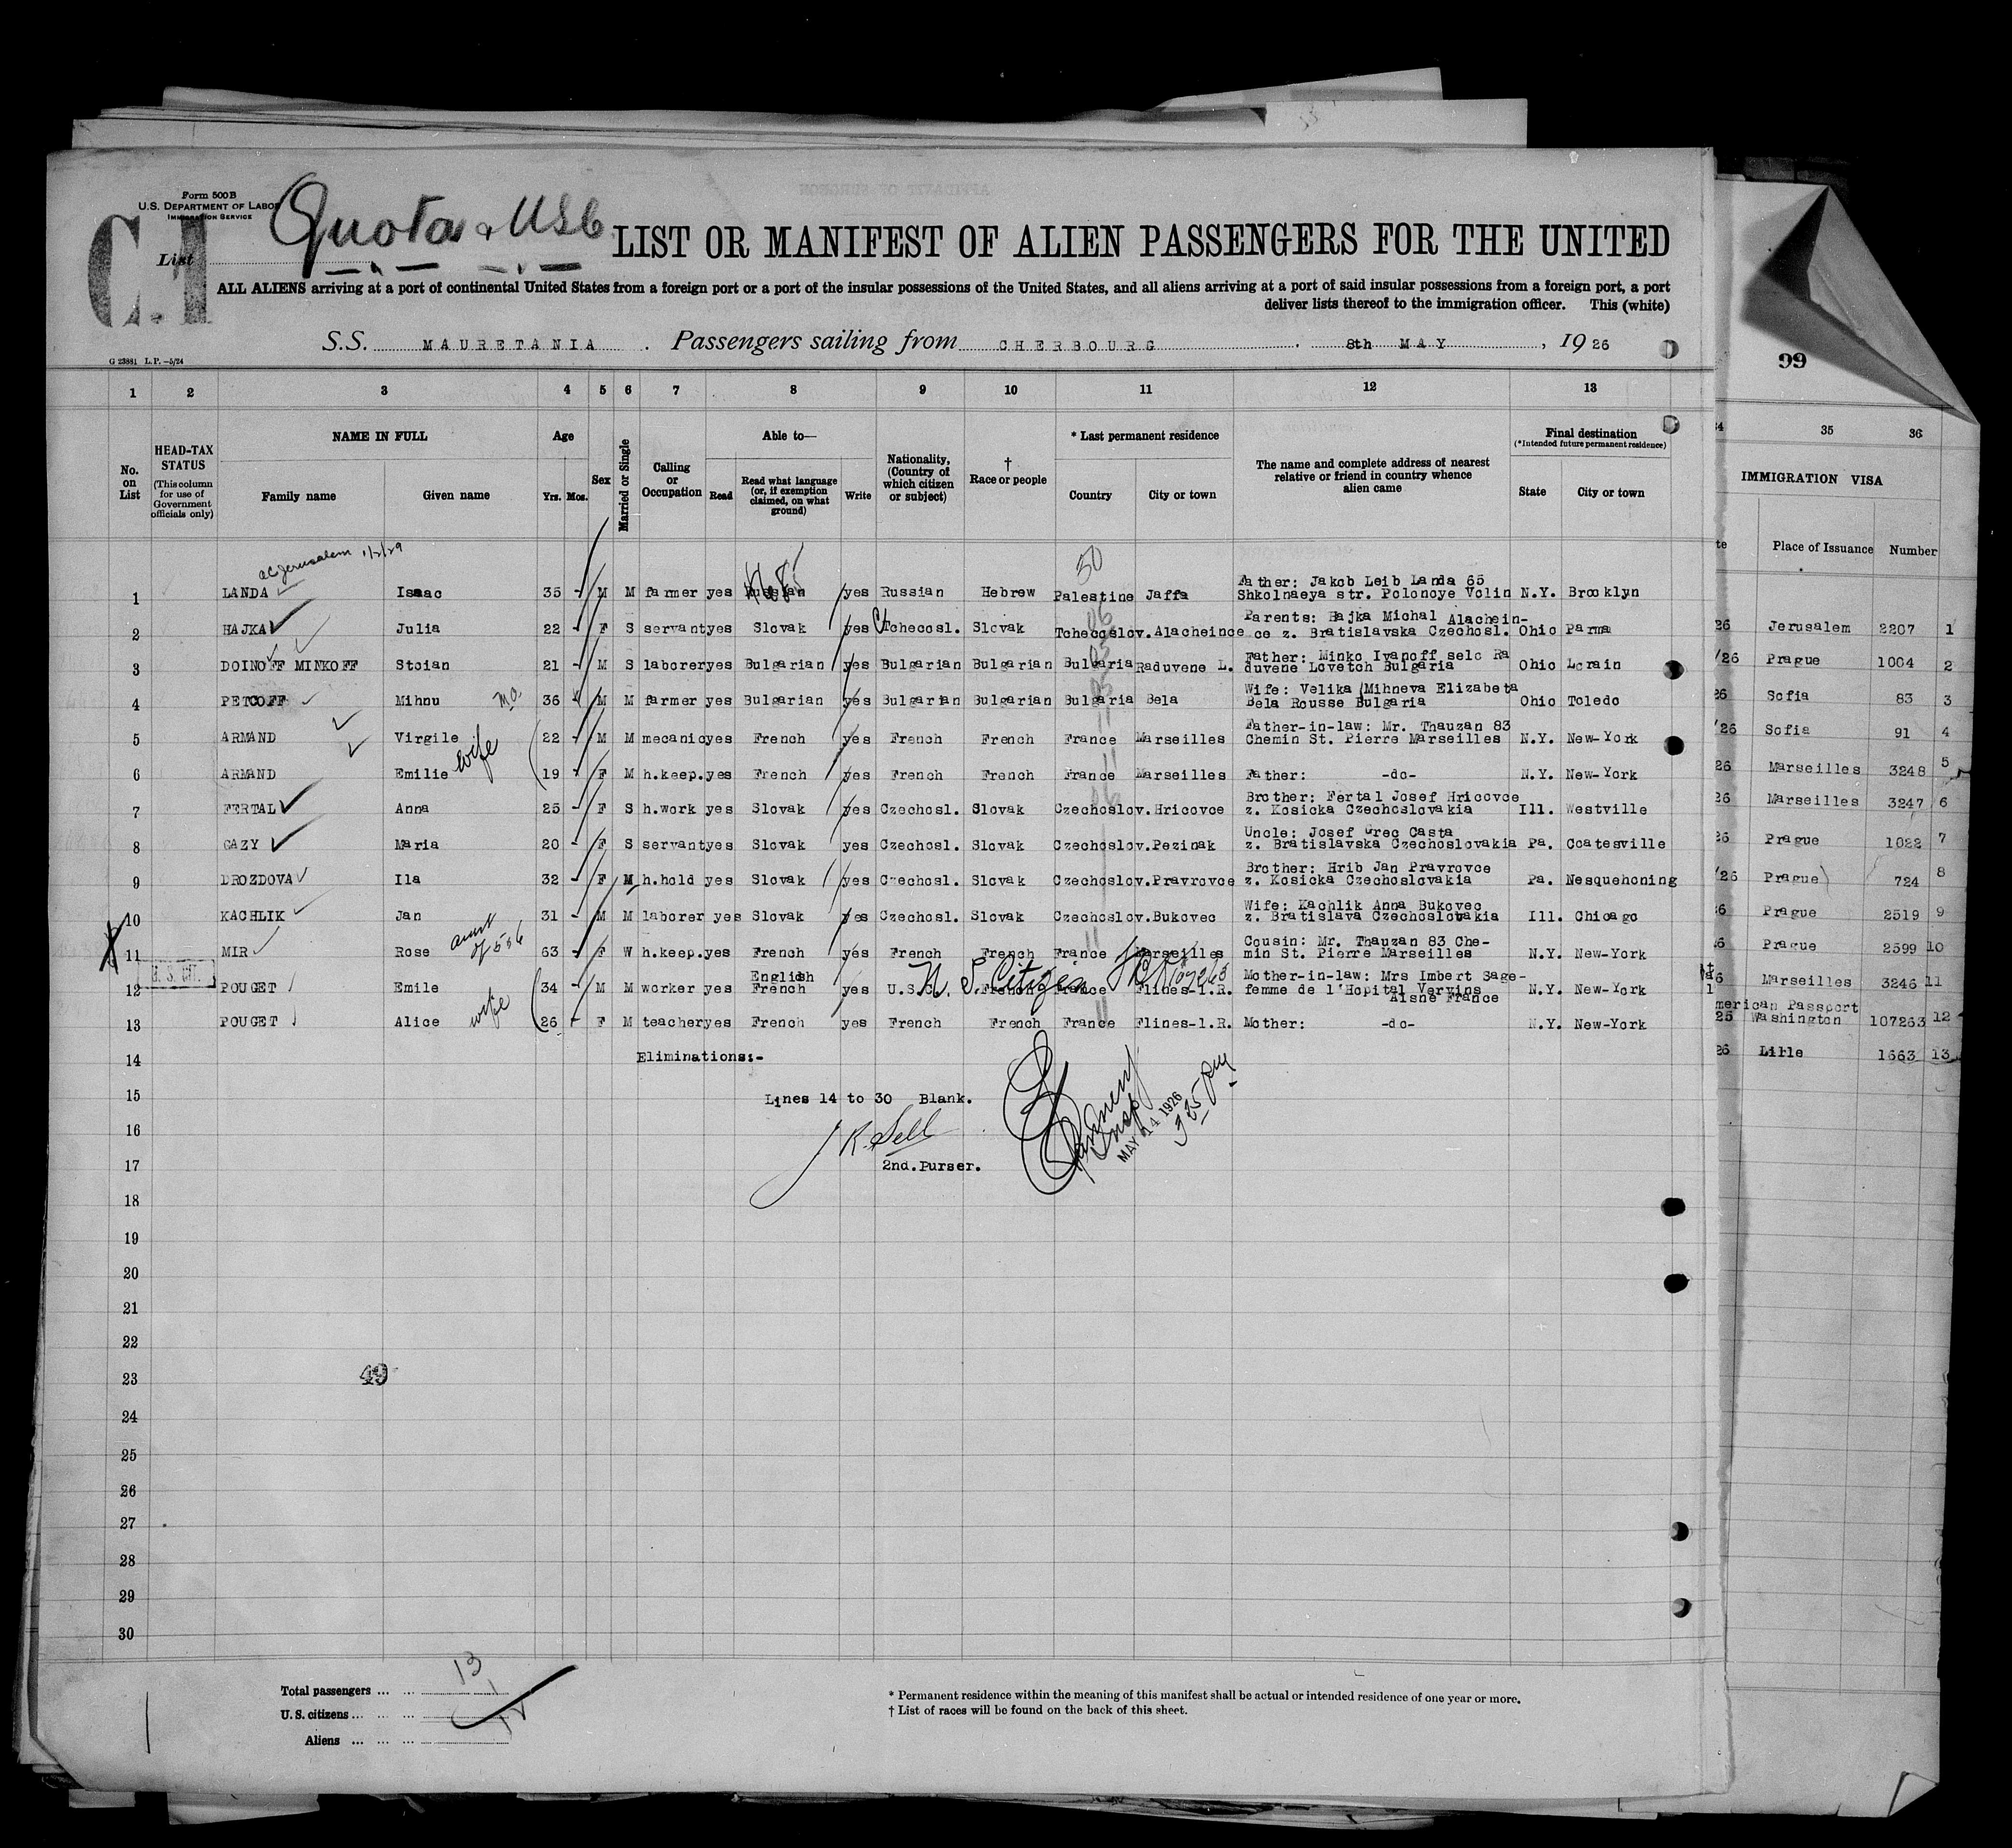 Form 500 B
U.S. DEPARTMENT OF LABOR
IMMIGRATION SERVICE
C.1
List
Quota & USC
LIST OR MANIFEST OF ALIEN PASSENGERS FOR THE UNITED
ALL ALIENS arriving at a port of continental United States from a foreign port or a port of the insular possessions of the United States, and all aliens arriving at a port of said insular possessions from a foreign port, a port
deliver lists thereof to the immigration officer. This (white)
S.S. MAURETANIA . Passengers sailing from CHERBOURG . 8th MAY , 19 26
G 23881 L.P.—5/24
99
1 2 3 4 5 6 7 8 9 10 11 12 13
35 36
No. on List
HEAD-TAX STATUS (This column for use of Government officials only)
NAME IN FULL
Family name Given name
Age
Yrs. Mos.
Sex
Married or Single
Calling or Occupation
Able to—
Read
Read what language (or, if exemption claimed, on what ground)
Write
Nationality, (Country of which citizen or subject)
† Race or people
* Last permanent residence
Country City or town
The name and complete address of nearest relative or friend in country whence alien came
Final destination (*Intended future permanent residence)
State City or town
IMMIGRATION VISA
Place of Issuance Number
Jerusalem 1/2/29
50
1 LANDA Isaac 35 - M M farmer yes yes Russian Hebrew Palestine Jaffa Father: Jakob Leib Landa 65 Shkolnaeya str. Polonoye Volin N.Y. Brooklyn
2 HAJKA Julia 22 - F S servant yes Slovak yes Tchecosl. Slovak 06 Tchecoslov. Alacheince Parents: Hajka Michal Alachein- ce z. Bratislavska Czechosl. Ohio Parma
26 Jerusalem 2207 1
3 DOINOFF MINKOFF Stoian 21 - M S laborer yes Bulgarian yes Bulgarian Bulgarian 05 Bulgaria Raduvene L. Father: Minko Ivanoff selo Ra duvene Lovetch Bulgaria Ohio Lorain
/26 Prague 1004 2
4 PETCOFF Mihnu 36 M M farmer yes Bulgarian yes Bulgarian Bulgarian 05 Bulgaria Bela Wife: Velika Mihneva Elizabeta Bela Rousse Bulgaria Ohio Toledo
26 Sofia 83 3
5 ARMAND Virgile 22 - M M mecanic yes French yes French French 11 France Marseilles Father-in-law: Mr. Thauzan 83 Chemin St. Pierre Marseilles N.Y. New-York
/26 Sofia 91 4
6 ARMAND Emilie wife 19 - F M h.keep. yes French yes French French 11 France Marseilles Father: -do- N.Y. New-York
26 Marseilles 3248 5
7 FERTAL Anna 25 - F S h.work yes Slovak yes Czechosl. Slovak 06 Czechoslov. Hricovce Brother: Fertal Josef Hricovce z. Kosicka Czechoslovakia Ill. Westville
26 Marseilles 3247 6
8 GAZY Maria 20 - F S servant yes Slovak yes Czechosl. Slovak Czechoslov. Pezinak Uncle: Josef Grec Casta z. Bratislavska Czechoslovakia Pa. Coatesville
26 Prague 1022 7
9 DROZDOVA Ila 32 - F M h.hold yes Slovak yes Czechosl. Slovak Czechoslov. Pravrovce Brother: Hrib Jan Pravrovce z. Kosicka Czechoslovakia Pa. Nesquehoning
/26 Prague 724 8
10 KACHLIK Jan 31 - M M laborer yes Slovak yes Czechosl. Slovak Czechoslov. Bukovec Wife: Kachlik Anna Bukovec z. Bratislava Czechoslovakia Ill. Chicago
6 Prague 2519 9
11 MIR Rose aunt of 5 & 6 63 - F W h.keep. yes French yes French French 11 France Marseilles Cousin: Mr. Thauzan 83 Che- min St. Pierre Marseilles N.Y. New-York
6 Prague 2599 10
U. S. CIT.
12 POUGET Emile 34 - M M worker yes English French yes U.S.C. French France Flines-l.R. Mother-in-law: Mrs Imbert Sage- femme de l'Hopital Vervins Aisne France N.Y. New-York
U. S. Citizen 107263
6 Marseilles 3246 11
13 POUGET Alice wife 26 - F M teacher yes French yes French French 11 France Flines-l.R. Mother: -do- N.Y. New-York
merican Passport
25 Washington 107263 12
14 Eliminations:-
26 Lille 1663 13
15 Lines 14 to 30 Blank.
16 J K. Sell
17 2nd. Purser.
Insp
MAY 14 1926
3 25 PM
18
19
20
21
22
23 49
24
25
26
27
28
29
30
Total passengers ... ... 13
U. S. citizens ... ... ... 1
Aliens ... ... ... 12
* Permanent residence within the meaning of this manifest shall be actual or intended residence of one year or more.
† List of races will be found on the back of this sheet.